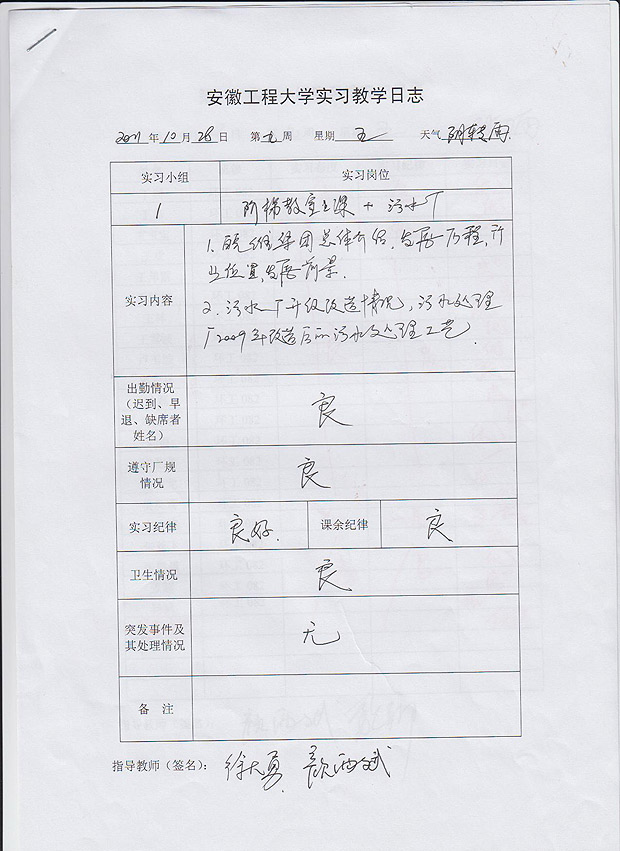 安徽工程大学实习教学日志
2011 年 10 月 28 日 第 九 周 星期 五 天气 阴转雨.
实习小组 实习岗位
1 阶梯教室上课 + 污水厂
实习内容
1. 皖维集团总体介绍,发展历程,行
业位置,发展前景.
2. 污水厂升级改造情况,污水处理
厂2009年改造后的污水处理工艺.
出勤情况
(迟到、早
退、缺席者
姓名)
良
遵守厂规
情况
良
实习纪律 良好. 课余纪律 良
卫生情况 良
突发事件及
其处理情况
无
备 注
指导教师(签名): 徐大勇